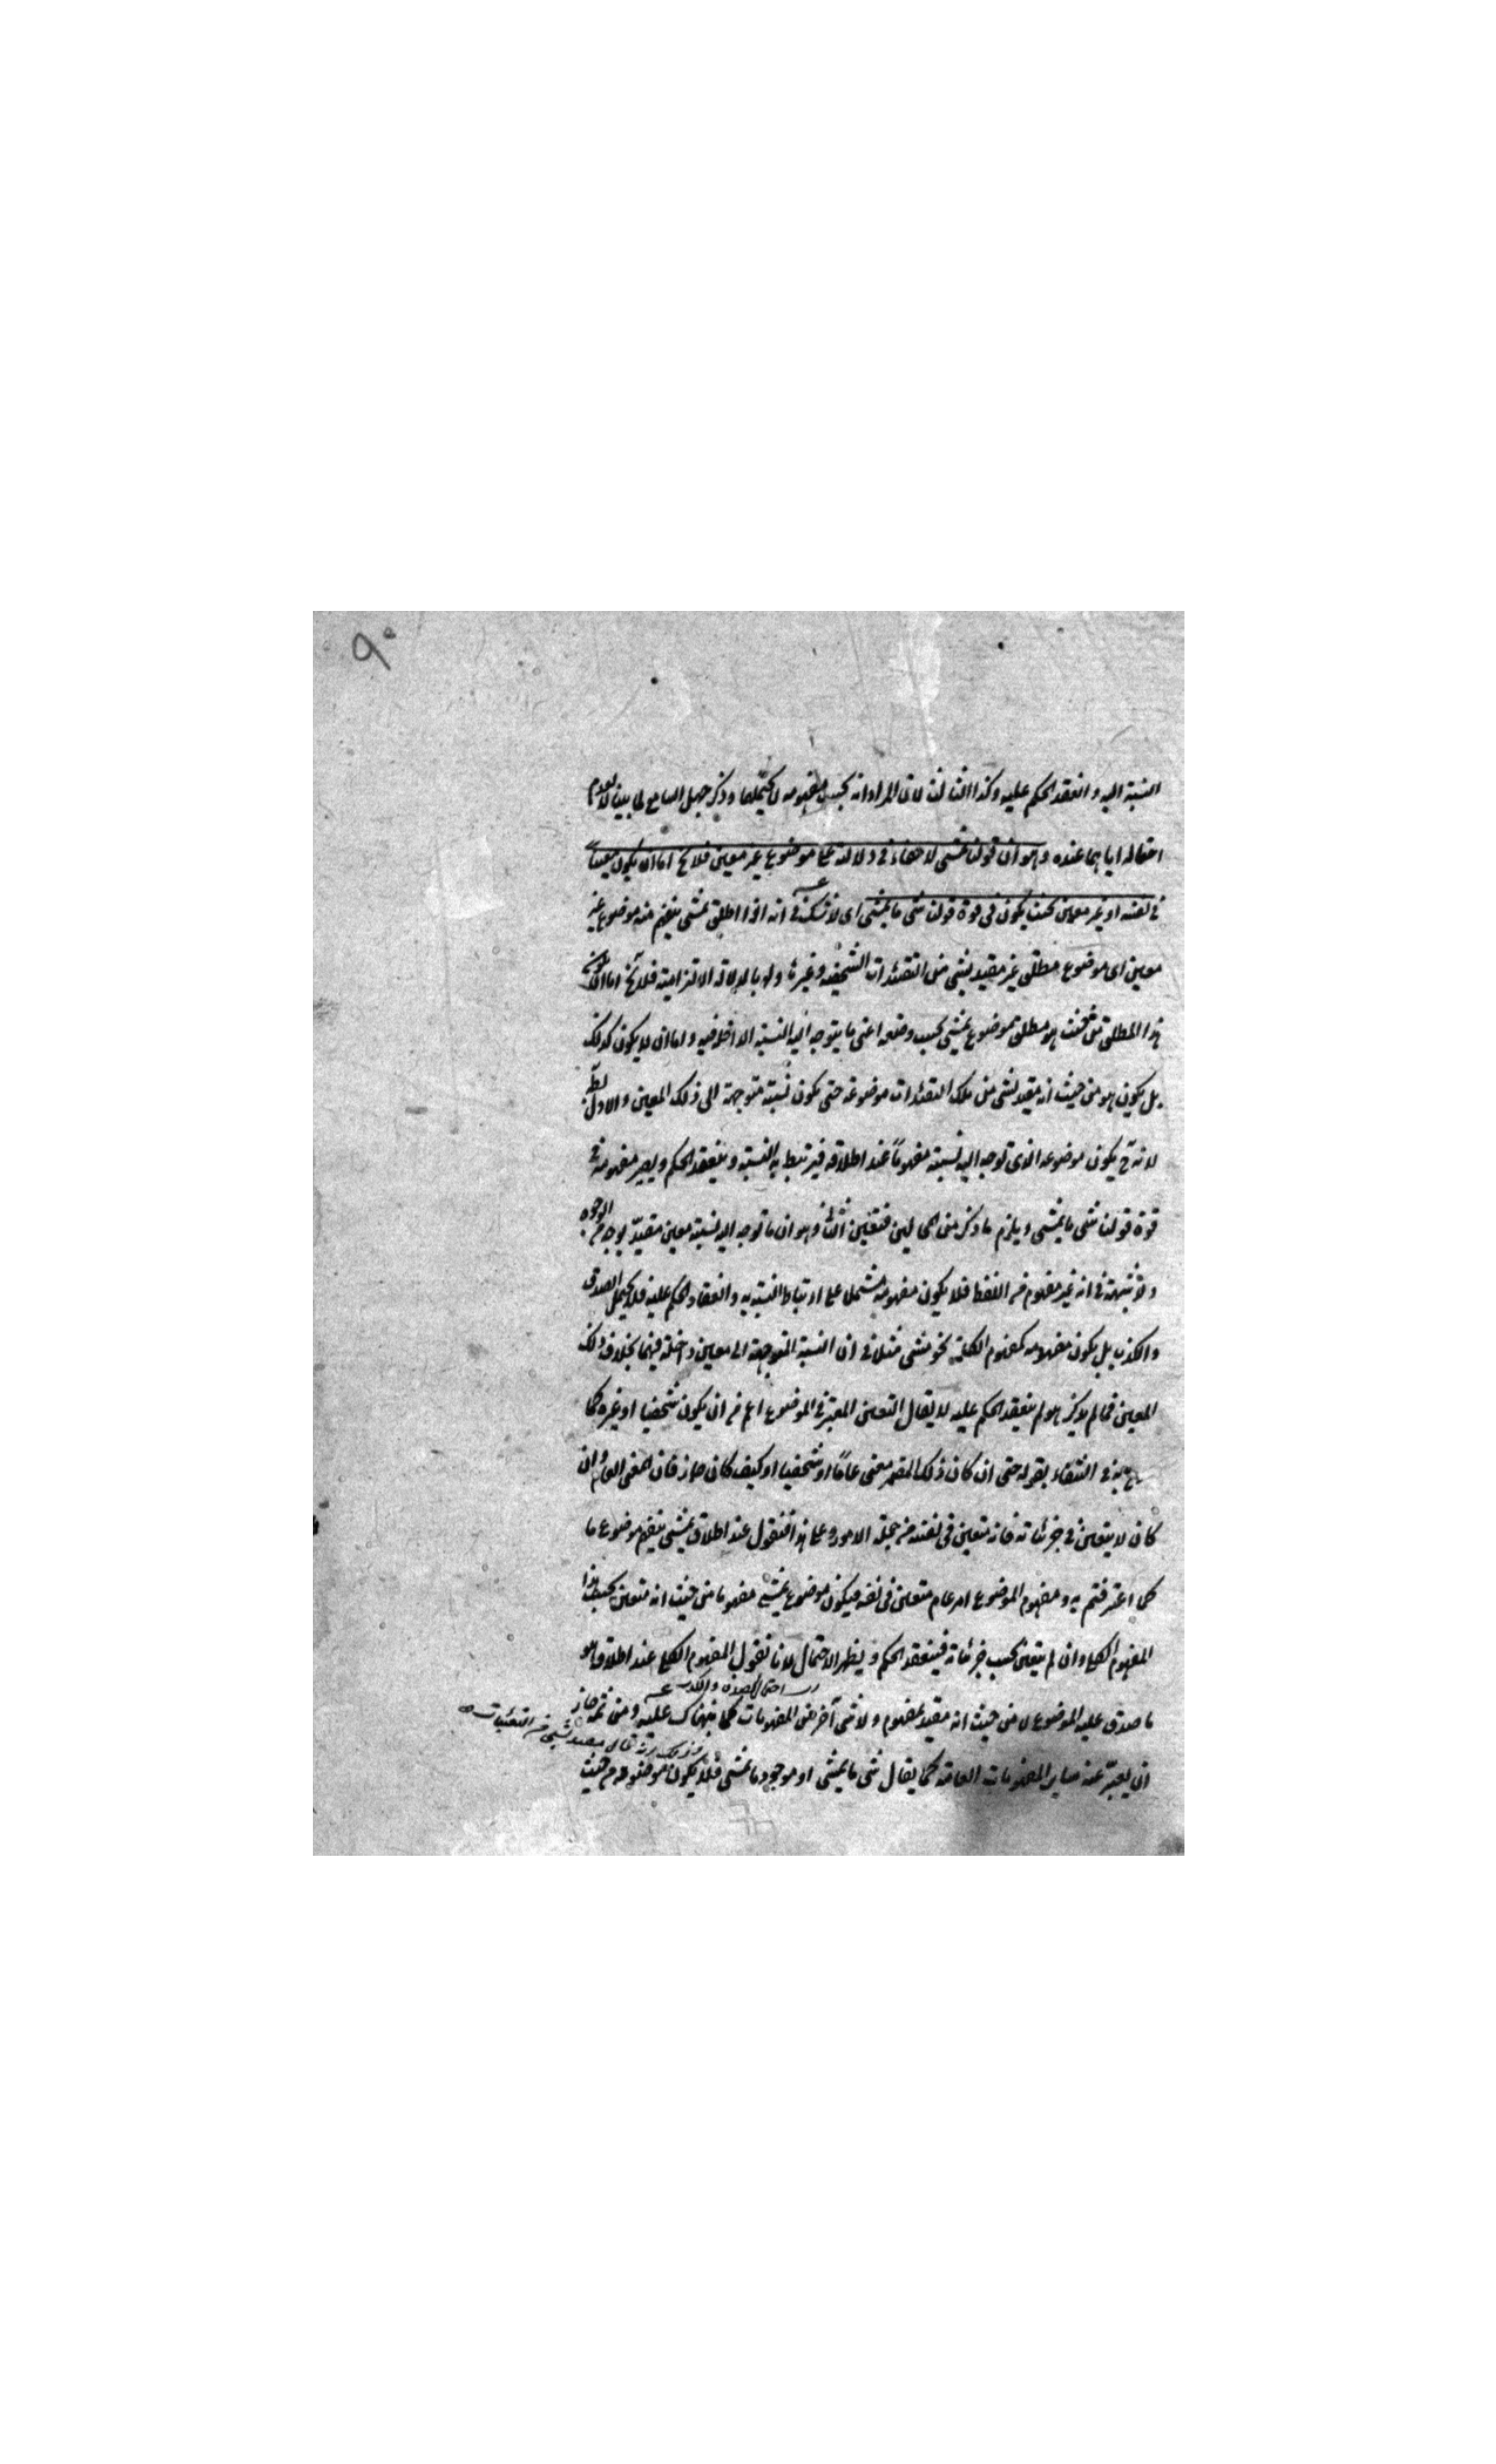 ٩٠
النسبة اليه وانعقد الحكم عليه وكذا الثالث لان المراد انه بحسب مفهومه لا يحتملها وذكر جهل السامع لما بيان لعدم
احتماله اياهما عنده وهو ان قولنا يمشى لا خفاء فى دلالته على موضوع غير معين فلا يخ اما ان يكون معيناً
فى نفسه او غير معين بحيث يكون فى قوة قولنا شى ما يمشى اى لا شك فى انه اذا اطلق يمشى يفهم منه موضوع غير
معين اى موضوع مطلق غير مقيد بشى من التقييدات الشخصية وغيرها ولو بالدلالة الالتزامية فلا يخ اما ان يكون
هذا المطلق من حيث هو مطلق موضوع يمشى بحسب وضعه اعنى ما يتوجه اليه النسبة الداخلة فيه واما ان لا يكون كذلك
بل يكون هو من حيث انه مقيد بشى من تلك التقييدات موضوعه حتى يكون نسبته متوجهة الى ذلك المعين والاول بط
لانه ح يكون موضوعه الذى توجه اليه نسبته مفهوماً عند اطلاقه فيرتبط به النسبة وينعقد الحكم ويصير مفهومه فى
قوة قولنا شى ما يمشى ويلزم ما ذكر من المحالين فتعين الثانى وهو ان ما توجه اليه نسبته معين مقيد بوجه من الوجوه
ولا شبهة فى انه غير مفهوم من اللفظ فلا يكون مفهومه مشتملا على ارتباط النسبة به وانعقاد الحكم عليه فلا يحتمل الصدق
والكذب بل يكون مفهومه كمفهوم الكلمة نحو مشى مثلا فى ان النسبة المتوجهة الى معين داخلة فيهما بخلاف ذلك
المعين فما لم يذكر هو لم ينعقد الحكم عليه لا يقال التعين المعتبر فى الموضوع اعم من ان يكون شخصيا او غيره كما
به فى الشفاء بقوله حتى ان كان ذلك المضمر معنى عاماً او شخصيا او كيف كان جاز فان المعنى العام وان
كان لا يتعين فى جزئياته فانه متعين فى نفسه من جملة الامور وعلى هذا فنقول عند اطلاق يمشى يفهم موضوع ما
كما اعترفتم به ومفهوم الموضوع امر عام متعين فى نفسه فيكون موضوع يمشى مفهوما من حيث انه متعين بحسب هذا
المفهوم الكلى وان لم يتعين بحسب جزئياته فينعقد الحكم ويظهر الاحتمال لانا نقول المفهوم الكلى عند اطلاقه هو
احتمال الصدق والكذب
ما صدق عليه الموضوع لا من حيث انه مقيد بمفهوم ولا شى آخر من المفهومات كما نبهناك عليه ومن ثمه جاز
ان يعبر عنه بساير المفهومات العامة كما يقال شى ما يمشى او موجود ما يمشى فلا يكون موضوعه من حيث